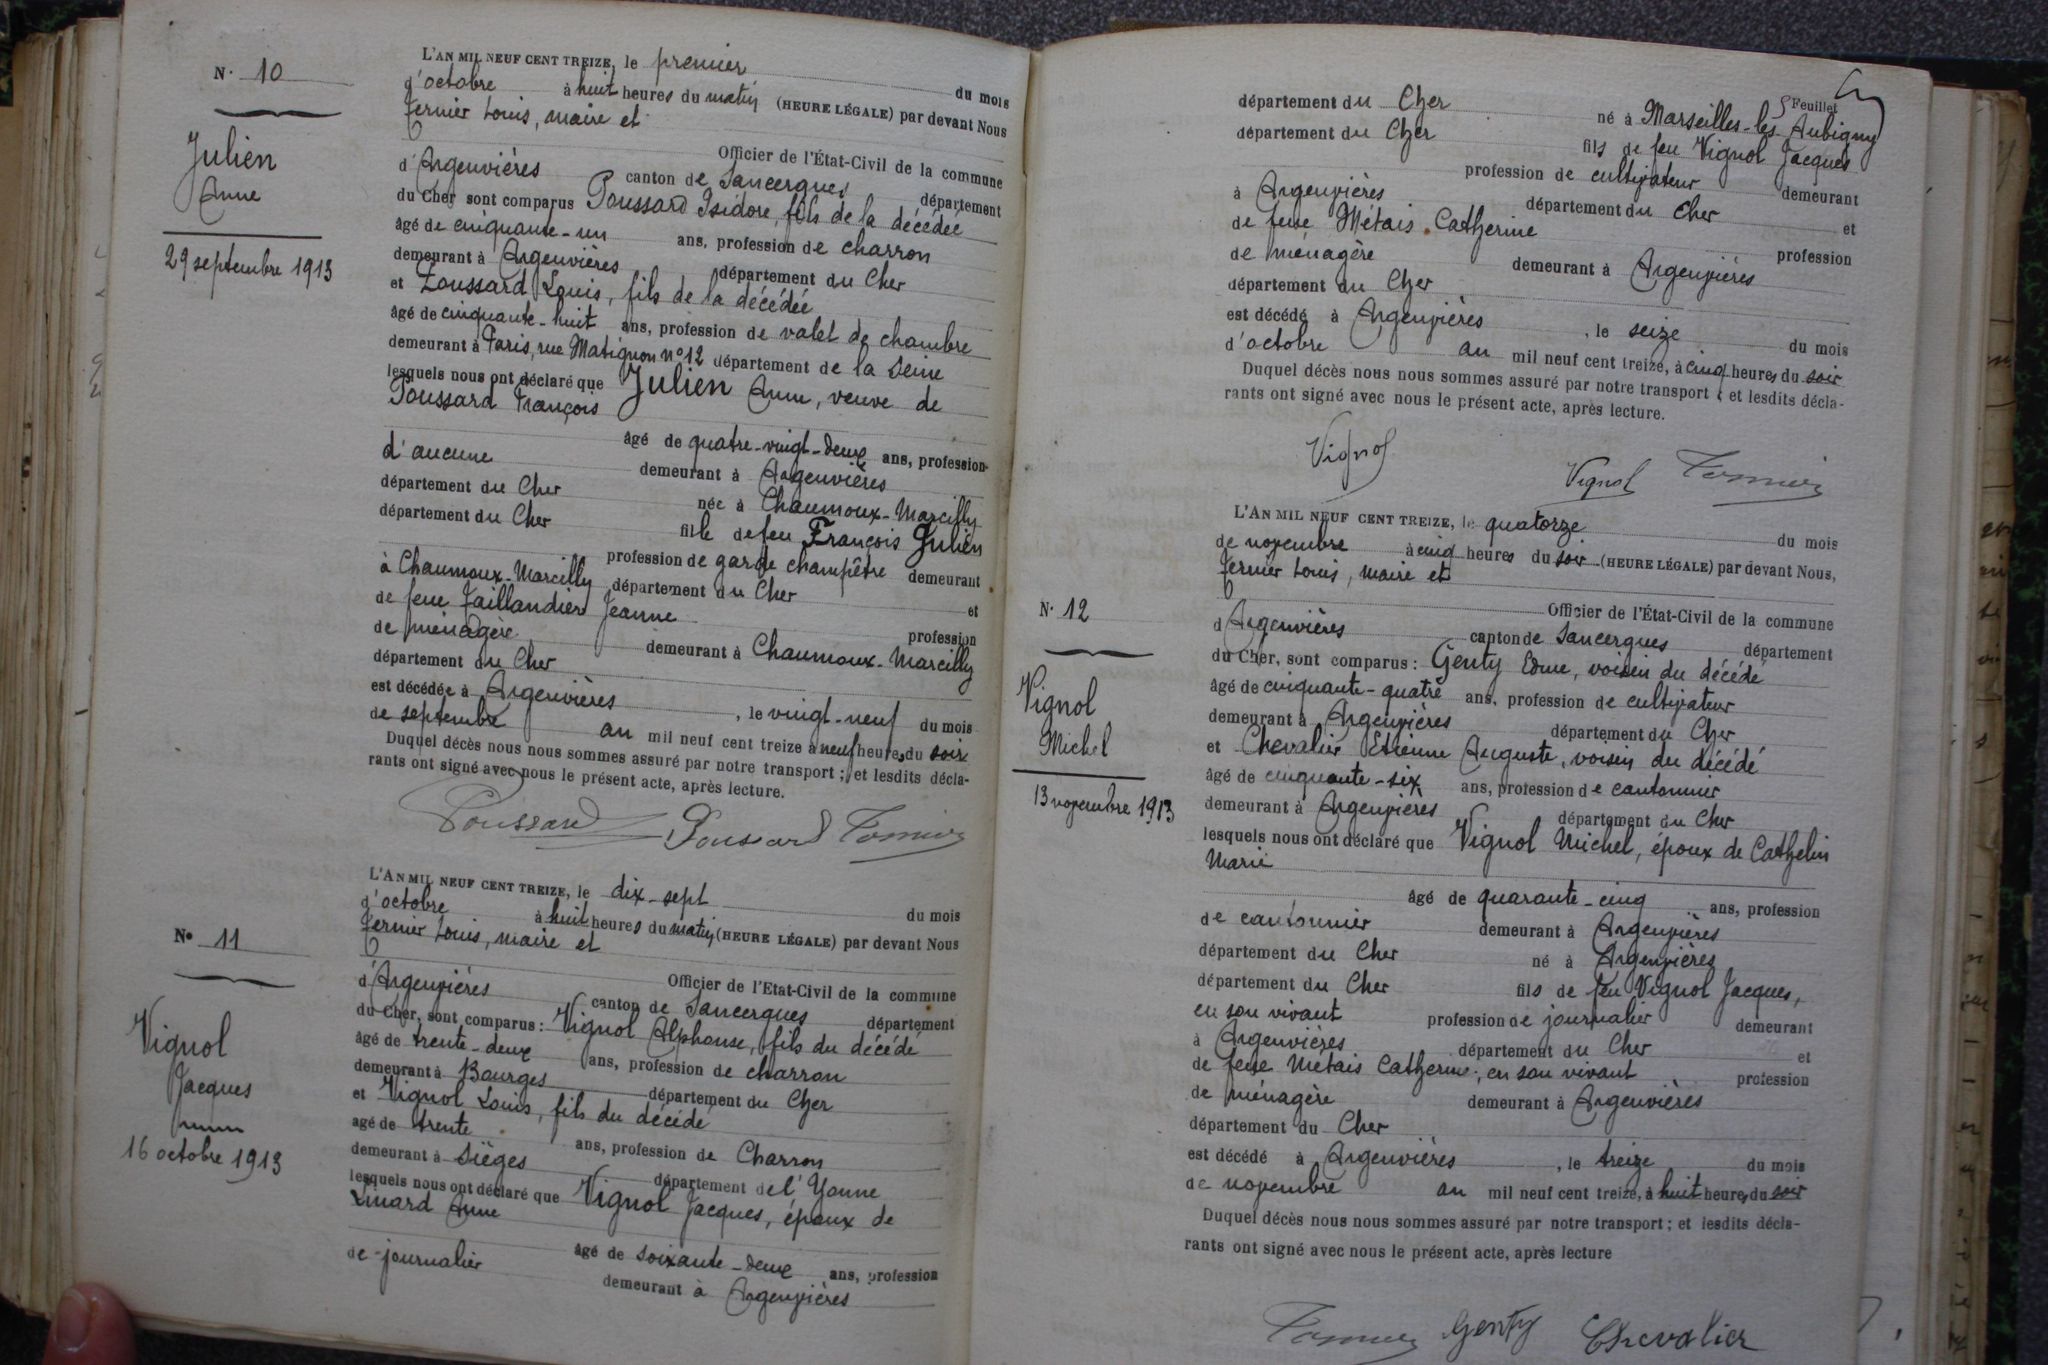 N° 10
Julien
Anne
29 septembre 1913
L'AN MIL NEUF CENT TREIZE, le premier du mois
d'octobre à huit heures du matin (HEURE LÉGALE) par devant Nous
Louis, maire et
Officier de l'État-Civil de la commune
d'Argenvières canton de Sancergues département
du Cher sont comparus Poussard Isidore, fils de la décédée
âgé de cinquante-un ans, profession de charron
demeurant à Argenvières département du Cher
et Poussard Louis, fils de la décédée
âgé de cinquante-huit ans, profession de valet de chambre
demeurant à Paris, rue Matignon n° 12 département de la Seine
lesquels nous ont déclaré que Julien Anne, veuve de
Poussard François
âgé de quatre-vingt-deux ans, profession
d'aucune demeurant à Argenvières
département du Cher née à Chaumoux-Marcilly
département du Cher fille de feu François Julien
profession de garde champêtre demeurant
à Chaumoux-Marcilly département du Cher et
de feue Taillandier Jeanne profession
de ménagère demeurant à Chaumoux-Marcilly
département du Cher
est décédée à Argenvières, le vingt-neuf du mois
de septembre an mil neuf cent treize à neuf heures du soir
Duquel décès nous nous sommes assuré par notre transport ; et lesdits décla-
rants ont signé avec nous le présent acte, après lecture.
Poussard Poussard
N° 11
Vignol
Jacques
16 octobre 1913
L'AN MIL NEUF CENT TREIZE, le dix-sept du mois
d'octobre à huit heures du matin (HEURE LÉGALE) par devant Nous
Louis, maire et
Officier de l'Etat-Civil de la commune
d'Argenvières canton de Sancergues département
du Cher, sont comparus : Vignol Alphonse, fils du décédé
âgé de trente-deux ans, profession de charron
demeurant à Bourges département du Cher
et Vignol Louis, fils du décédé
agé de trente ans, profession de Charron
demeurant à Sièges département de l'Yonne
lesquels nous ont déclaré que Vignol Jacques, époux de
Linard Anne
âgé de soixante-deux ans, profession
de journalier demeurant à Argenvières
Feuillet
département du Cher né à Marseilles-les-Aubigny
département du Cher fils de feu Vignol Jacques
profession de cultivateur demeurant
à Argenvières département du Cher et
de feue Métais Catherine profession
de ménagère demeurant à Argenvières
département du Cher
est décédé à Argenvières, le seize du mois
d'octobre an mil neuf cent treize, à cinq heures du soir
Duquel décès nous nous sommes assuré par notre transport ; et lesdits décla-
rants ont signé avec nous le présent acte, après lecture.
Vignol Vignol
N° 12
Vignol
Michel
13 novembre 1913
L'AN MIL NEUF CENT TREIZE, le quatorze du mois
de novembre à cinq heures du soir (HEURE LÉGALE) par devant Nous,
Louis, maire et
Officier de l'État-Civil de la commune
d'Argenvières canton de Sancergues département
du Cher, sont comparus : Genty Edme, voisin du décédé
âgé de cinquante-quatre ans, profession de cultivateur
demeurant à Argenvières département du Cher
et Chevalier Etienne Auguste, voisin du décédé
âgé de cinquante-six ans, profession de cantonnier
demeurant à Argenvières département du Cher
lesquels nous ont déclaré que Vignol Michel, époux de Cathelin
Marie
âgé de quarante-cinq ans, profession
de cantonnier demeurant à Argenvières
département du Cher né à Argenvières
département du Cher fils de feu Vignol Jacques,
en son vivant profession de journalier demeurant
à Argenvières département du Cher et
de feue Métais Catherine, en son vivant profession
de ménagère demeurant à Argenvières
département du Cher
est décédé à Argenvières, le treize du mois
de novembre an mil neuf cent treize, à huit heures du soir
Duquel décès nous nous sommes assuré par notre transport ; et lesdits décla-
rants ont signé avec nous le présent acte, après lecture
Genty Chevalier